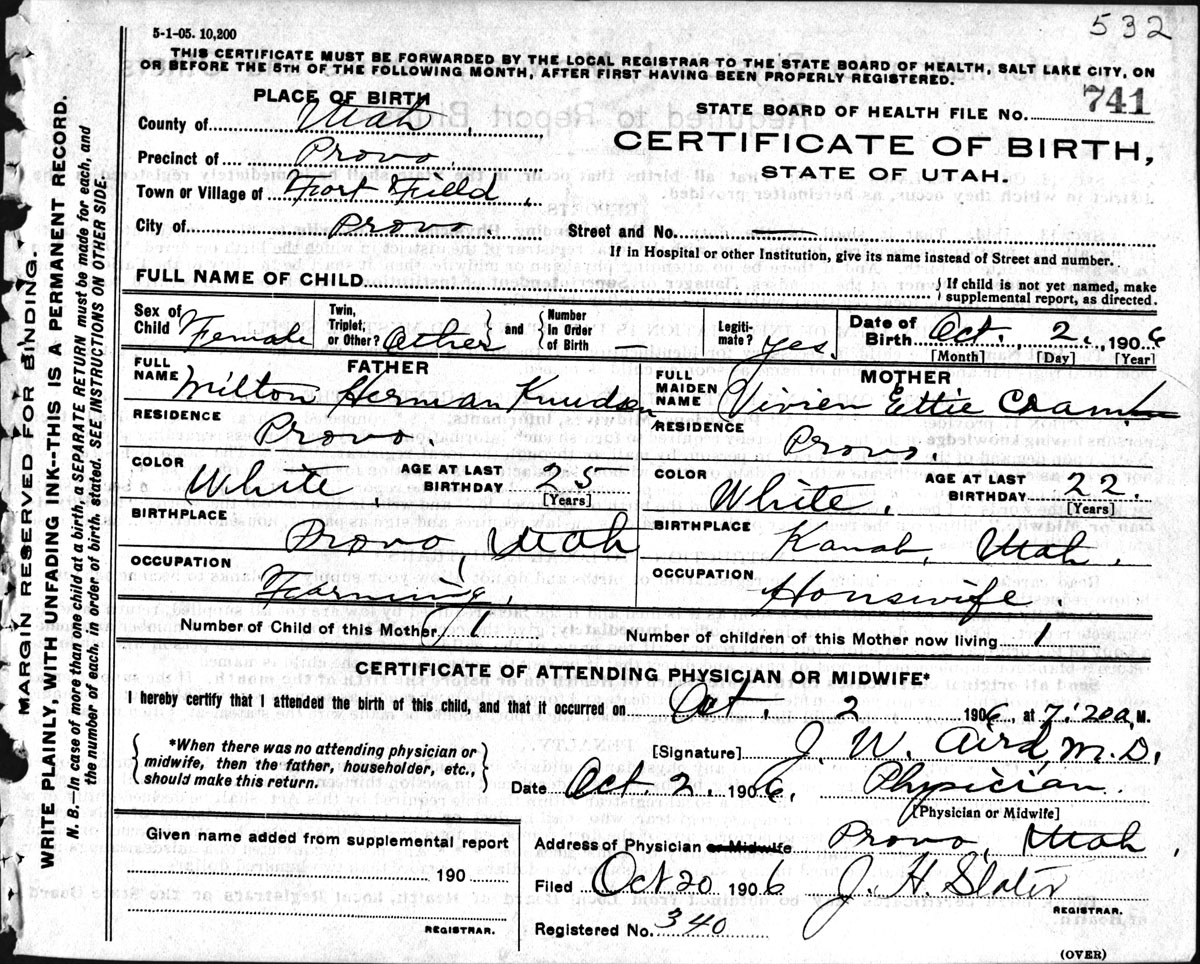 532
5-1-05. 10,200
THIS CERTIFICATE MUST BE FORWARDED BY THE LOCAL REGISTRAR TO THE STATE BOARD OF HEALTH, SALT LAKE CITY, ON
OR BEFORE THE 5TH OF THE FOLLOWING MONTH, AFTER FIRST HAVING BEEN PROPERLY REGISTERED.
PLACE OF BIRTH
County of Utah,
Precinct of Provo,
Town or Village of Fort Field,
City of Provo
STATE BOARD OF HEALTH FILE NO. 741
CERTIFICATE OF BIRTH,
STATE OF UTAH.
Street and No.
If in Hospital or other Institution, give its name instead of Street and number.
FULL NAME OF CHILD
If child is not yet named, make
supplemental report, as directed.
Sex of Child Female
Twin, Triplet, or Other? Other
and
Number In Order of Birth —
Legiti-mate? yes.
Date of Birth Oct. 2., 1906
[Month] [Day] [Year]
FATHER
FULL NAME Milton Herman Knudsen
RESIDENCE Provo
COLOR White,
AGE AT LAST BIRTHDAY 25
[Years]
BIRTHPLACE Provo, Utah
OCCUPATION Farming,
MOTHER
FULL MAIDEN NAME Vivien Ettie
RESIDENCE Provo.
COLOR White.
AGE AT LAST BIRTHDAY 22.
[Years]
BIRTHPLACE Kanab, Utah.
OCCUPATION Houswife.
Number of Child of this Mother 1
Number of children of this Mother now living 1
CERTIFICATE OF ATTENDING PHYSICIAN OR MIDWIFE*
I hereby certify that I attended the birth of this child, and that it occurred on Oct. 2 1906, at 7:20 a, M.
*When there was no attending physician or
midwife, then the father, householder, etc.,
should make this return.
[Signature] J. W. Aird, M.D.
Date Oct. 2., 1906, Physician.
[Physician or Midwife]
Given name added from supplemental report
190
REGISTRAR.
Address of Physician or Midwife Provo, Utah,
Filed Oct 20 1906 J. H. Slater
REGISTRAR.
Registered No. 340
(OVER)
MARGIN RESERVED FOR BINDING.
WRITE PLAINLY, WITH UNFADING INK--THIS IS A PERMANENT RECORD.
N. B.—In case of more than one child at a birth, a SEPARATE RETURN must be made for each, and
the number of each, in order of birth, stated. SEE INSTRUCTIONS ON OTHER SIDE.